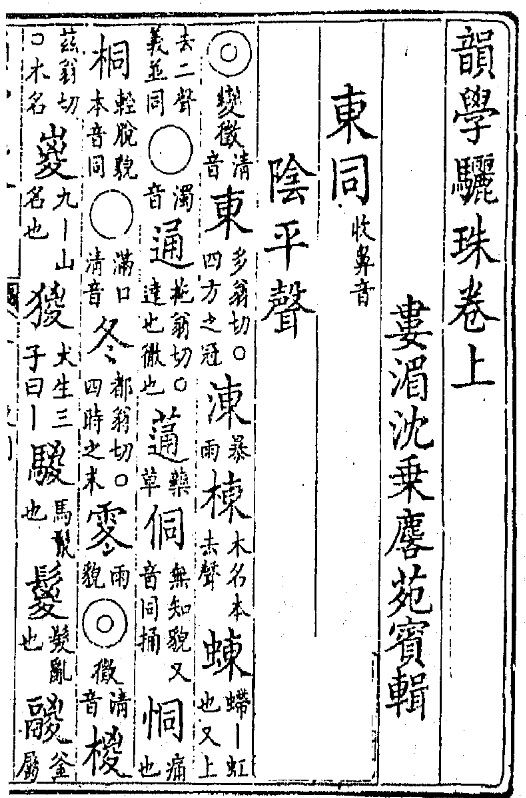 韻學驪珠卷上
婁湄沈乗麐苑賓輯
東同收鼻音
陰平聲
◎變徵清音東多翁切○四方之冠涷暴雨棟木名本去聲蝀螮丨虹也又上
去二聲義並同○濁音通拖翁切○達也徹也蓪藥草侗無知貌又音同捅恫痛也
桐輕脫貌本音同○滿口清音冬都翁切○四時之末䨦雨貌◎徵清音椶
茲翁切○木名嵏九丨山名也猣犬生三子曰丨騣馬鬣也鬉髮亂也鬷釜屬